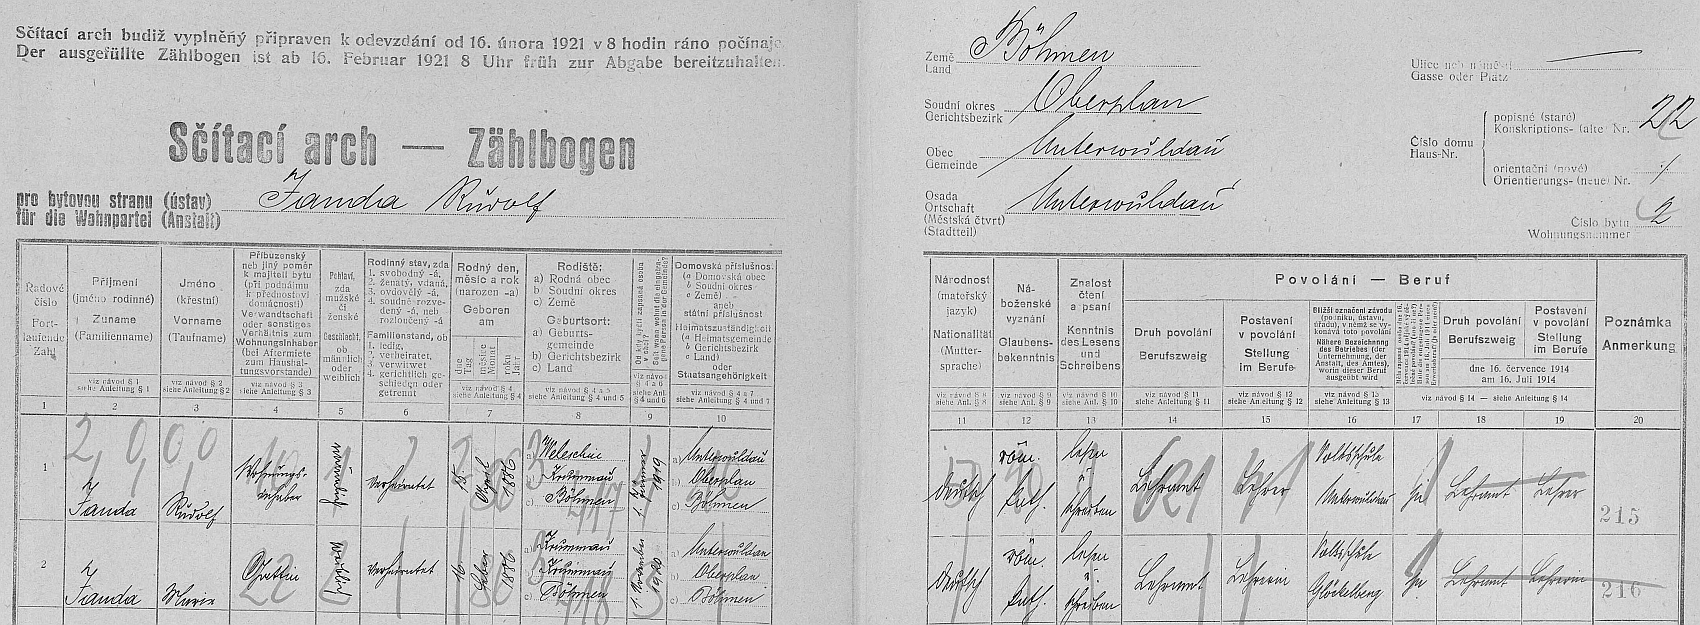 Sčítací arch budiž vyplněný připraven k odevzdání od 16. února 1921 v 8 hodin ráno počínaje
Der ausgefüllte Zählbogen ist ab 16. Februar 1921 8 Uhr früh zur Abgabe bereitzuhalten.
Sčítací arch — Zählbogen
pro bytovou stranu (ústav)
für die Wohnpartei (Anstalt)
Janda Rudolf
Země
Land
Böhmen
Soudní okres
Gerichtsbezirk
Oberplan
Obec
Gemeinde
Unterwuldau
Osada
Ortschaft
(Městská čtvrť)
(Stadtteil)
Unterwuldau
Ulice neb náměstí
Gasse oder Platz
Číslo domu
Haus-Nr.
popisné (staré)
Konskriptions- (alte) Nr.
22
orientační (nové)
Orientierungs- (neue) Nr.
Číslo bytu
Wohnungsnummer
2
Řadové
číslo
Fort-
laufende
Zahl
Příjmení
(jméno rodinné)
Zuname
(Familienname)
viz návod § 1
siehe Anleitung § 1
Jméno
(křestní)
Vorname
(Taufname)
viz návod § 2
siehe Anleitung § 2
Příbuzenský
neb jiný poměr
k majiteli bytu
(při podnájmu
k přednostovi
domácnosti)
Verwandtschaft
oder sonstiges
Verhältnis zum
Wohnungsinhaber
(bei Aftermiete
zum Haushal-
tungsvorstande)
viz návod § 3
siehe Anleitung
§ 3
Pohlaví,
zda
mužské
či
ženské
Geschlecht,
ob
männlich
oder
weiblich
Rodinný stav, zda
1. svobodný -á,
2. ženatý, vdaná,
3. ovdovělý -á,
4. soudně rozve-
dený -á, neb
rozloučený -á
Familienstand, ob
1. ledig,
2. verheiratet,
3. verwitwet,
4. gerichtlich ge-
schieden oder
getrennt
Rodný den,
měsíc a rok
(narozen -a)
Geboren
am
dne
Tag
měsíce
Monat
roku
Jahr
viz návod § 4
siehe Anleitung § 4
Rodiště:
a) Rodná obec
b) Soudní okres
c) Země
Geburtsort:
a) Geburts-
gemeinde
b) Gerichtsbezirk
c) Land
viz návod § 4 a 5
siehe Anleitung
§ 4 und 5
viz návod
§ 4 a 6
siehe Anl.
§ 4 und 6
Domovská příslušnost
(a Domovská obec
(b Soudní okres
(c Země)
aneb
státní příslušnost
Heimatszuständigkeit
(a Heimatsgemeinde
(b Gerichtsbezirk
(c Land)
oder
Staatsangehörigkeit
viz návod § 4 a 7
siehe Anl. § 4 und 7
Národnost
(mateřský
jazyk)
Nationalität
(Mutter-
sprache)
viz návod § 8
siehe Anl. § 8
Ná-
boženské
vyznání
Glaubens-
bekenntnis
viz návod § 9
siehe Anl. § 9
Znalost
čtení
a psaní
Kenntnis
des Lesens
und
Schreibens
viz návod § 10
siehe Anl. § 10
Povolání — Beruf
Druh povolání
Berufszweig
viz návod § 11
siehe Anleitung § 11
Postavení
v povolání
Stellung
im Berufe
viz návod § 12
siehe Anleitung § 12
Bližší označení závodu
(podniku, ústavu,
úřadu), v němž se vy-
konává toto povolání
Nähere Bezeichnung
des Betriebes (der
Unternehmung, der
Anstalt, des Amtes),
worin dieser Beruf
ausgeübt wird
viz návod § 13
siehe Anleitung § 13
Druh povolání
Berufszweig
Postavení
v povolání
Stellung
im Berufe
dne 16. července 1914
am 16. Juli 1914
viz návod § 14 — siehe Anleitung § 14
Poznámka
Anmerkung
1 2 3 4 5 6 7 8 9 10 11 12 13 14 15 16 17 18 19 20
1
Janda
Rudolf
Wohnungs-
inhaber
männlich
verheiratet
15.
April
1886
a) Weleschin
b) Krummau
c) Böhmen
1. Jänner
1919
a) Unterwuldau
b) Oberplan
c) Böhmen
deutsch
röm.
kath.
lesen
u
schreiben
Lehramt
Lehrer
Volksschule
Unterwuldau
Lehramt
Lehrer
215
2
Janda
Marie
Gattin
weiblich
verheiratet
16
1886
a) Krummau
b) Krummau
c) Böhmen
1920
a) Unterwuldau
b) Oberplan
c) Böhmen
deutsch
röm.
kath.
lesen
u.
schreiben
Lehramt
Lehrerin
Volksschule
Glöckelberg
Lehramt
Lehrerin
216